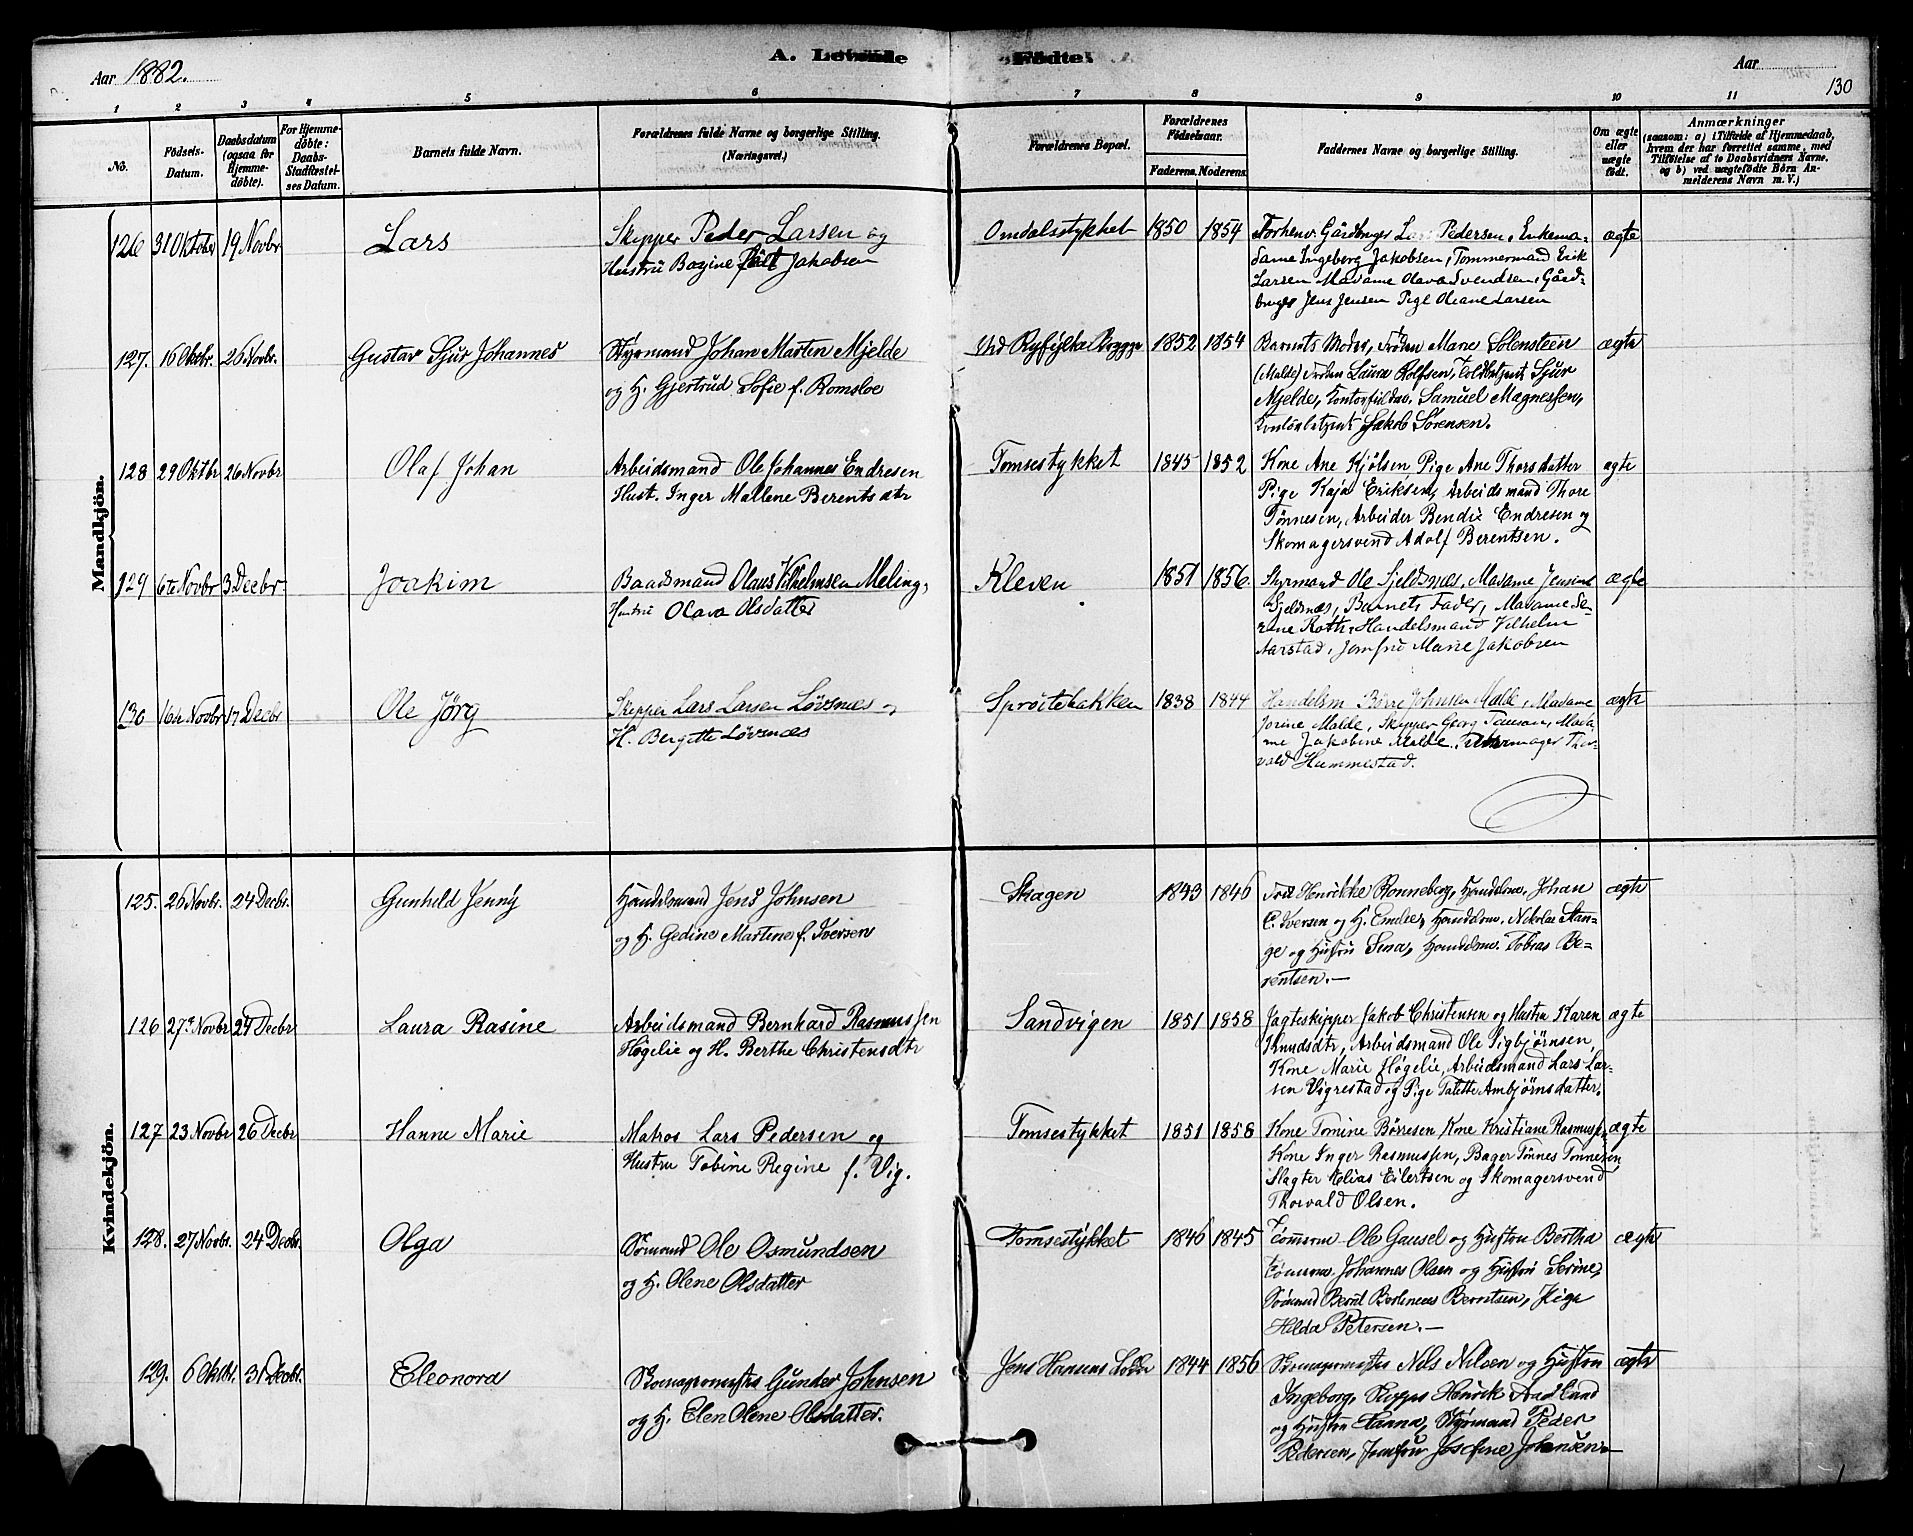 A. Levende Fødte.
Aar 1882. Aar
130
1 2 3 4 5 6 7 8 9 10 11
No. Födsels-Datum. Daabsdatum (ogsaa for Hjemmedöbte). For Hjemmedöbte: Daabs-Stadfæstelses Datum. Barnets fulde Navn. Forældrenes fulde Navne og borgerlige Stilling. (Næringsvei.) Forældrenes Bopæl. Forældrenes Födselsaar. Faderens. Moderens. Faddernes Navne og borgerlige Stilling. Om ægte eller uægte födt. Anmærkninger (saasom: a) i Tilfælde af Hjemmedaab, hvem der har forrettet samme, med Tilföielse af to Daabsvidners Navne, og b) ved uægtefödte Börn Anmelderens Navn m. V.)
Mandkjön.
126 31 Oktober 19 Novbr Lars Skipper Peder Larsen og 1850 1854 Forhenv. Gårdbruger Lars Pedersen, Enkema- ægte
Hustru født Jakobsen Omdalsstykket dame Ingeborg Jakobsen, Tømmermand Erik
Larsen Madame Olava Svendsen, Gård-
bruger Jens Jensen Pige Oleane Larsen
127. 16 Oktbr. 26 Novbr. Gustav Sjur Johannes Styrmand Johan Marten Mjelde Ved Ryfylke Brygge 1852 1854 Barnets Moder, Frøken Marie Solensteen ægte
og H. Gjertrud Sofie f. Romsloe (Malde) Frøken Laura Rolfsen, Toldbetjent Sjur
Mjelde, Samuel Magnessen,
Jakob Sørensen.
128 29 Oktbr 26 Novbr Olaf Johan Arbeidsmand Ole Johannes Endresen Tomsestykket 1845 1852 Kone Ane Kjølsen Pige Ane Thorsdatter ægte
Hust. Inger Mallene Berentsdtr Pige Kaja Eriksen, Arbeidsmand Thore
Tønnesen, Arbeider Bendix Endresen og
Skomagersvend Adolf Berentsen.
129 6te Novbr 3 Decbr. Joakim Baadsmand Olaus Vilhelmsen Meling, Kleven 1851 1856 Styrmand Ole Fjeldsnæs, Madame Jensine ægte
Hustru Olava Olsdatter Fjeldsnæs, Barnets Fader, Madame Se-
rine Roth, Handelsmand Vilhelm
Aarstad, Jomfru Marie Jakobsen
130 16te Novbr 17 Decbr Ole Jörg Skipper Lars Larsen Løvsnæs og Sprøitebakken 1838 1844 Handelsm Børre Johnsen Malde, Madame ægte
H. Bergitte Løvsnæs Jorine Malde, Skipper Georg Madam
me Jakobine Malde, Thor-
vald Hammestad.
Kvindekjön.
125. 26 Novbr. 24 Decbr. Gunhild Jenny Handelsmand Jens Johnsen Skagen 1843 1846 Henrikke Rønneberg, Handelsm. Johan ægte
og H. Gedine Martine f. Iversen C. Iversen og H. Handelsm. Nikolai Stan-
ge og Hustru Sina, Handelsm. Tobias Be-
rentsen.—
126 27de Novbr 24 Decbr Laura Rasine Arbeidsmand Bernhard Rasmussen Sandvigen 1851 1858 Jagteskipper Jakob Christensen og Hustru Karen ægte
Høgelie og H. Berthe Christensdtr Knudsdtr, Arbeidsmand Ole Sigbjørnsen,
Kone Marie Høgelie, Arbeidsmand Lars Lar-
sen Vigrestad og Pige Talette Ambjørnsdatter.
127 23 Novbr 26 Decbr Hanne Marie Matros Lars Pedersen og Tomsestykket 1851 1858 Kone Tomine Børresen Kone Kristiane Rasmussen ægte
Hustru Tobine Regine f. Vig. Kone Inger Rasmussen, Bager Tønnes Tønnesen,
Slagter Helias Eilertsen og Skomagersvend
Thorvald Olsen.
128. 27 Novbr. 24 Decbr. Olga Sømand Ole Osmundsen Tomsestykket 1846 1845 Tømerm. Ole Gausel og Hustru Bertha ægte
og H. Olene Olsdatter Tømerm. Johannes Olsen og Hustru Serine,
Sømand Bernt Berntsen, Pige
Hilda Petersen.—
129. 6 Oktbr. 31 Decbr. Eleonora Skomagermester Gunder Johnsen Jens Hansens 1844 1856 Skomagermester Nils Nilsen og Hustru ægte
og H. Elen Olene Olsdatter. Ingeborg, Henrik Aadland
og Hustru Hanna, Styrmand Peder
Pedersen, Jomfru Josefine Johansen.—